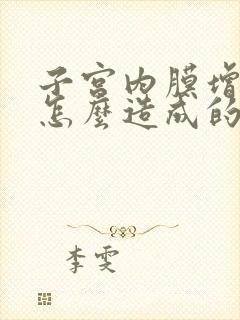 子宫内膜增
怎麼造成的
李雯